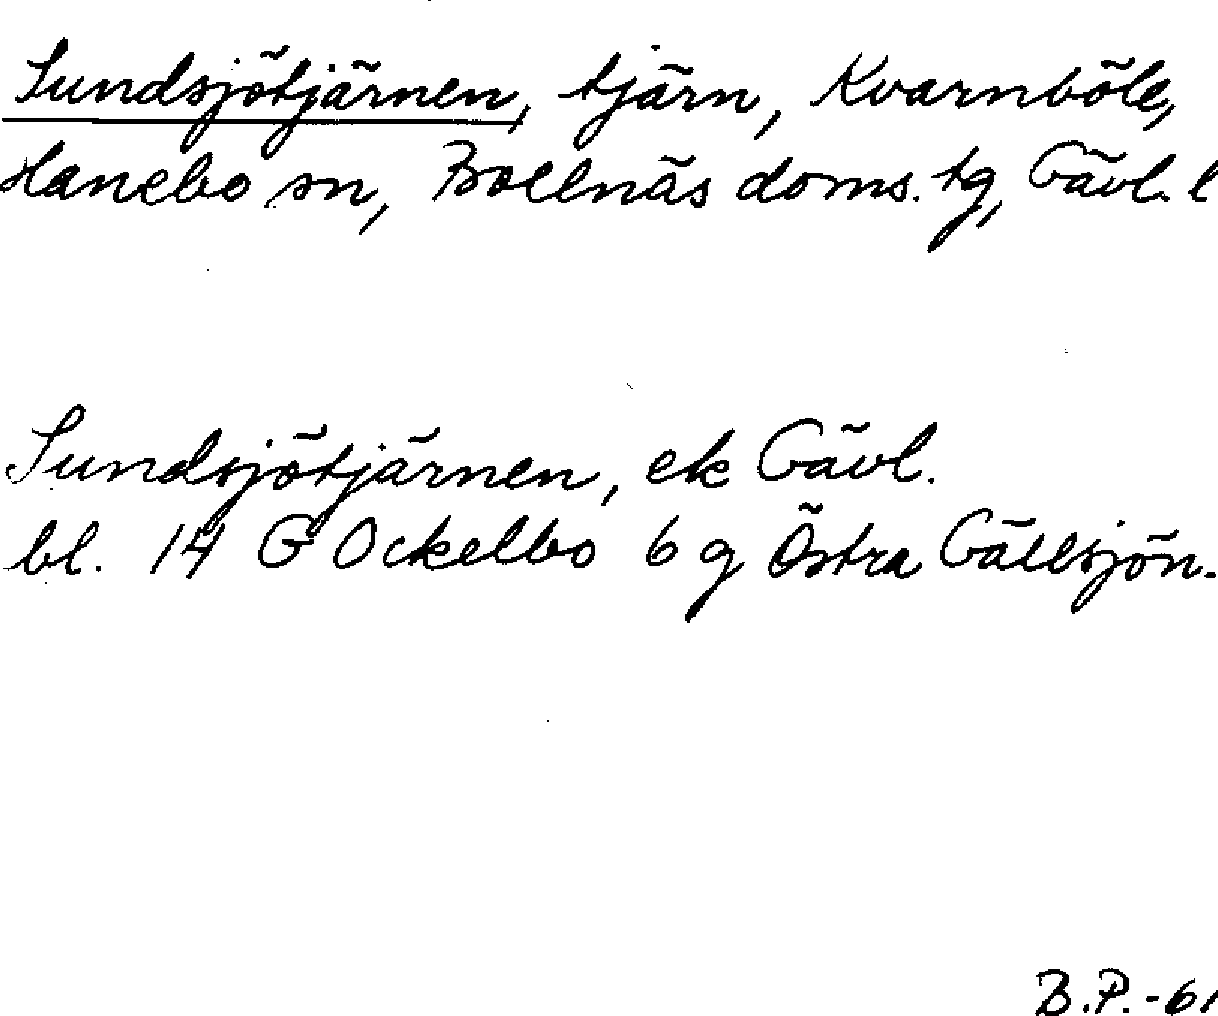 Sundsjötjärnen, tjärn, Kvarnböle,
Hanebo sn, Bollnäs doms. tg, Gävl. l
Sundsjötjärnen, ek Gävl.
bl. 14 G Ockelbo 6 g Östra Gällsjön.
B.P.-61